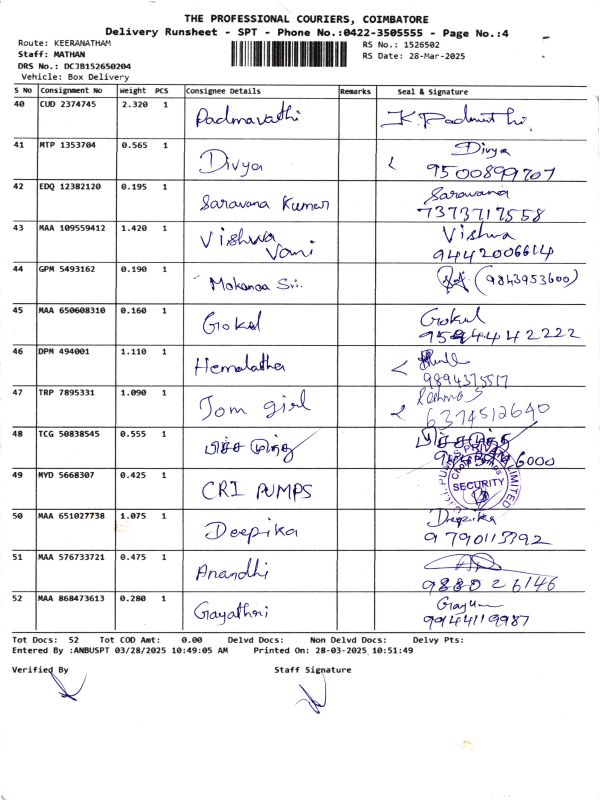 THE PROFESSIONAL COURIERS, COIMBATORE
Delivery Runsheet - SPT - Phone No.:0422-3505555 - Page No.:4
Route: KEERANATHAM RS No.: 1526502
Staff: MATHAN RS Date: 28-Mar-2025
DRS No.: DCJB152650204
Vehicle: Box Delivery
S No Consignment No Weight PCS Consignee Details Remarks Seal & Signature
40 CUD 2374745 2.320 1 Padmavathi K. Padmavathi
41 MTP 1353704 0.565 1 Divya Divya
9500899707
42 EDQ 12382120 0.195 1 Saravana Kumar Saravana
7373717558
43 MAA 109559412 1.420 1 Vishwa Vani Vishwa
9442006614
44 GPM 5493162 0.190 1 Mokanaa Sri. (9843953600)
45 MAA 650608310 0.160 1 Gokul Gokul
46 DPM 494001 1.110 1 Hemalatha
9894375517
47 TRP 7895331 1.090 1 Tom girl
6374512640
48 TCG 50838545 0.555 1
49 MYD 5668307 0.425 1 CRI PUMPS SECURITY
50 MAA 651027738 1.075 1 Deepika Deepika
9790113392
51 MAA 576733721 0.475 1 Anandhi
52 MAA 868473613 0.280 1 Gayathri
9944119987
Tot Docs: 52 Tot COD Amt: 0.00 Delvd Docs: Non Delvd Docs: Delvy Pts:
Entered By :ANBUSPT 03/28/2025 10:49:05 AM Printed On: 28-03-2025 10:51:49
Verified By Staff Signature